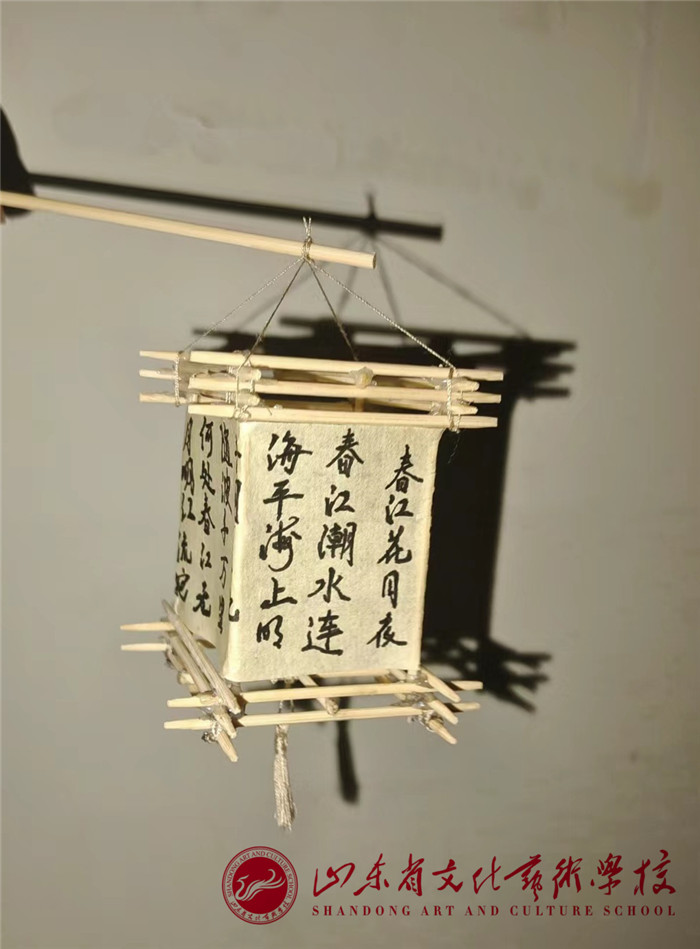 春江花月夜
春江潮水连
海平海上明
随波千万里
何处春江无
月明江流宛
SHANDONG ART AND CULTURE SCHOOL
山东省文化藝術學校
SHANDONG ART AND CULTURE SCHOOL